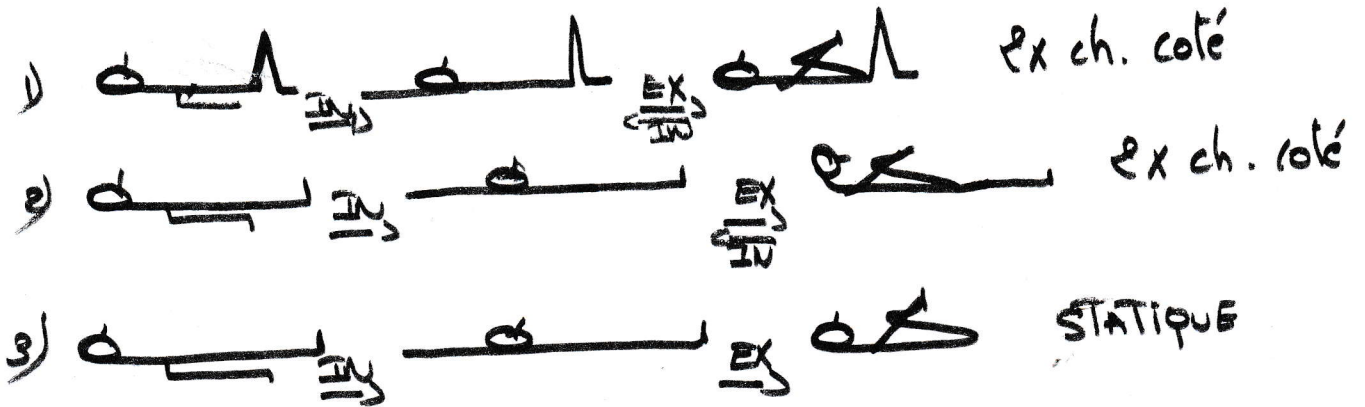 1) IN EX IN 2x ch. coté
2) IN EX IN 2x ch. coté
3) IN EX STATIQUE